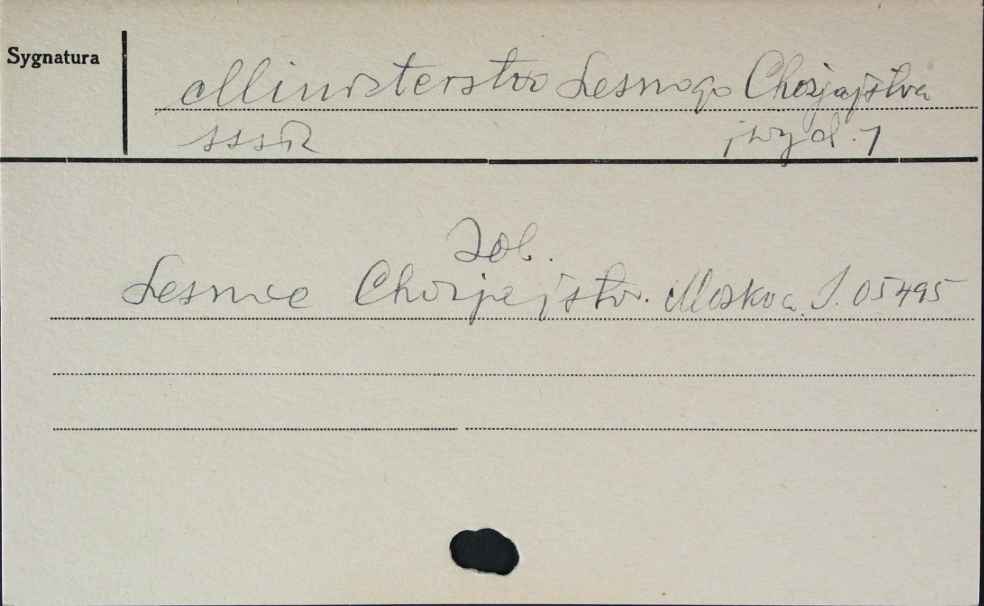 Sygnatura
Ministerstvo Lesnogo Chozjajstva
SSSR ; wyd. 1
Zob.
Lesnoe Chozjajstvo. Moskva. S. 05495